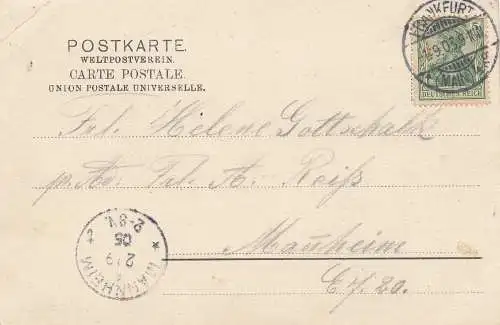 POSTKARTE.
WELTPOSTVEREIN.
CARTE POSTALE.
UNION POSTALE UNIVERSELLE.
FRANKFURT
(MAIN)
DEUTSCHES REICH
Frl. Helene Gottschalk
p. Ad. Frl. A. Reiß
Mannheim
E 7. 20.
MANNHEIM
2/9
05
2-8V
* 2